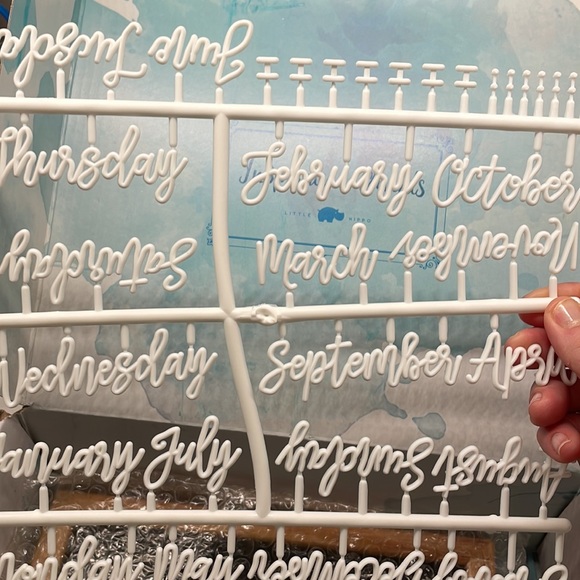 Tuesday June
Thursday February October
Saturday March November
Wednesday September April
January July Sunday August
Monday May
LITTLE HIPPO